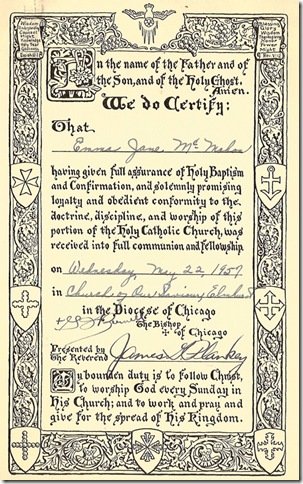 In the name of the Father and of
the Son, and of the Holy Ghost.
Amen.
We do Certify:
That
Emma Jane Mc Mahon
having given full assurance of Holy Baptism
and Confirmation, and solemnly promising
loyalty and obedient conformity to the
doctrine, discipline, and worship of this
portion of the Holy Catholic Church, was
received into full communion and fellowship
on Wednesday, May 22, 1957
in Church of Our Saviour, Elmhurst
in the Diocese of Chicago
The Bishop
of Chicago
Presented by
The Reverend James
My bounden duty is to follow Christ,
to worship God every Sunday in
His Church; and to work and pray and
give for the spread of His Kingdom.